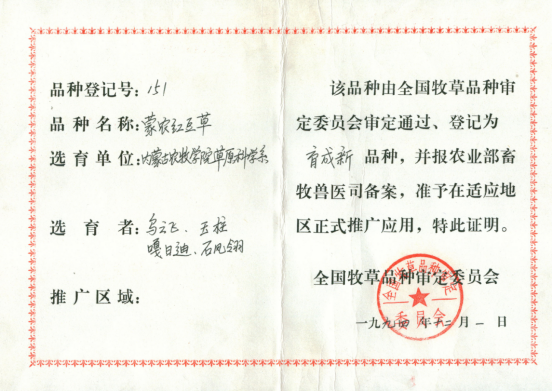 品种登记号：151
品种名称：蒙农红豆草
选育单位：内蒙古农牧学院草原科学系
选育者：乌云飞、王柱
嘎日迪、石凤翎
推广区域：
该品种由全国牧草品种审
定委员会审定通过、登记为
育成新 品种，并报农业部畜
牧兽医司备案，准予在适应地
区正式推广应用，特此证明。
全国牧草品种审定委员会
一九九四年十二月一日
全国牧草品种审定
委员会